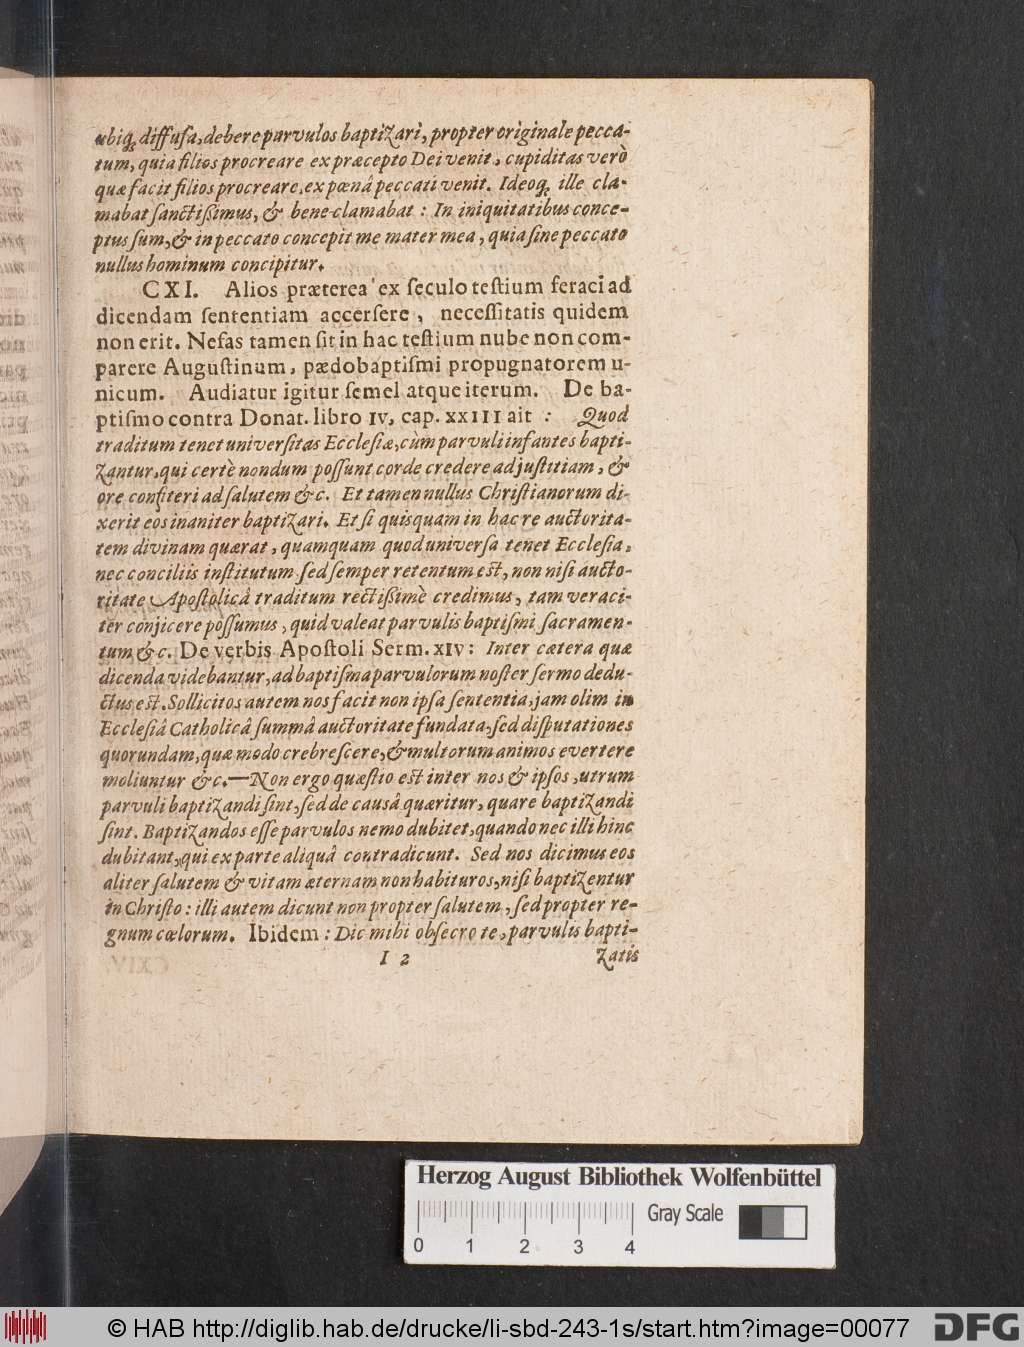 ubiq; diffusa, debere parvulos baptizari, propter originale pecca-
tum, quia filios procreare ex præcepto Dei venit, cupiditas verò
quæ facit filios procreare, ex pœnâ peccati venit. Ideoq; ille cla-
mabat sanctißimus, & bene clamabat : In iniquitatibus conce-
ptus sum, & in peccato concepit me mater mea, quia sine peccato
nullus hominum concipitur.
CXI. Alios præterea ex seculo testium feraci ad
dicendam sententiam accersere, necessitatis quidem
non erit. Nefas tamen sit in hac testium nube non com-
parere Augustinum, pædobaptismi propugnatorem u-
nicum. Audiatur igitur semel atque iterum. De ba-
ptismo contra Donat. libro IV, cap. XXIII ait : Quod
traditum tenet universitas Ecclesiæ, cùm parvuli infantes bapti-
zantur, qui certè nondum possunt corde credere ad justitiam, &
ore confiteri ad salutem &c. Et tamen nullus Christianorum di-
xerit eos inaniter baptizari. Et si quisquam in hac re auctorita-
tem divinam quærat, quamquam quod universa tenet Ecclesia,
nec conciliis institutum sed semper retentum est, non nisi aucto-
ritate Apostolicâ traditum rectißimè credimus, tam veraci-
ter conjicere possumus, quid valeat parvulis baptismi sacramen-
tum &c. De verbis Apostoli Serm. XIV: Inter cætera quæ
dicenda videbantur, ad baptisma parvulorum noster sermo dedu-
ctus est. Sollicitos autem nos facit non ipsa sententia, jam olim in
Ecclesiâ Catholicâ summâ auctoritate fundata, sed disputationes
quorundam, quæ modo crebrescere, & multorum animos evertere
moliuntur &c.—Non ergo quæstio est inter nos & ipsos, utrum
parvuli baptizandi sint, sed de causâ quæritur, quare baptizandi
sint. Baptizandos esse parvulos nemo dubitet, quando nec illi hinc
dubitant, qui ex parte aliquâ contradicunt. Sed nos dicimus eos
aliter salutem & vitam æternam non habituros, nisi baptizentur
in Christo : illi autem dicunt non propter salutem, sed propter re-
gnum cœlorum. Ibidem : Dic mihi obsecro te, parvulis bapti-
I 2 zatis
Herzog August Bibliothek Wolfenbüttel
Gray Scale
0 1 2 3 4
© HAB http://diglib.hab.de/drucke/li-sbd-243-1s/start.htm?image=00077
DFG